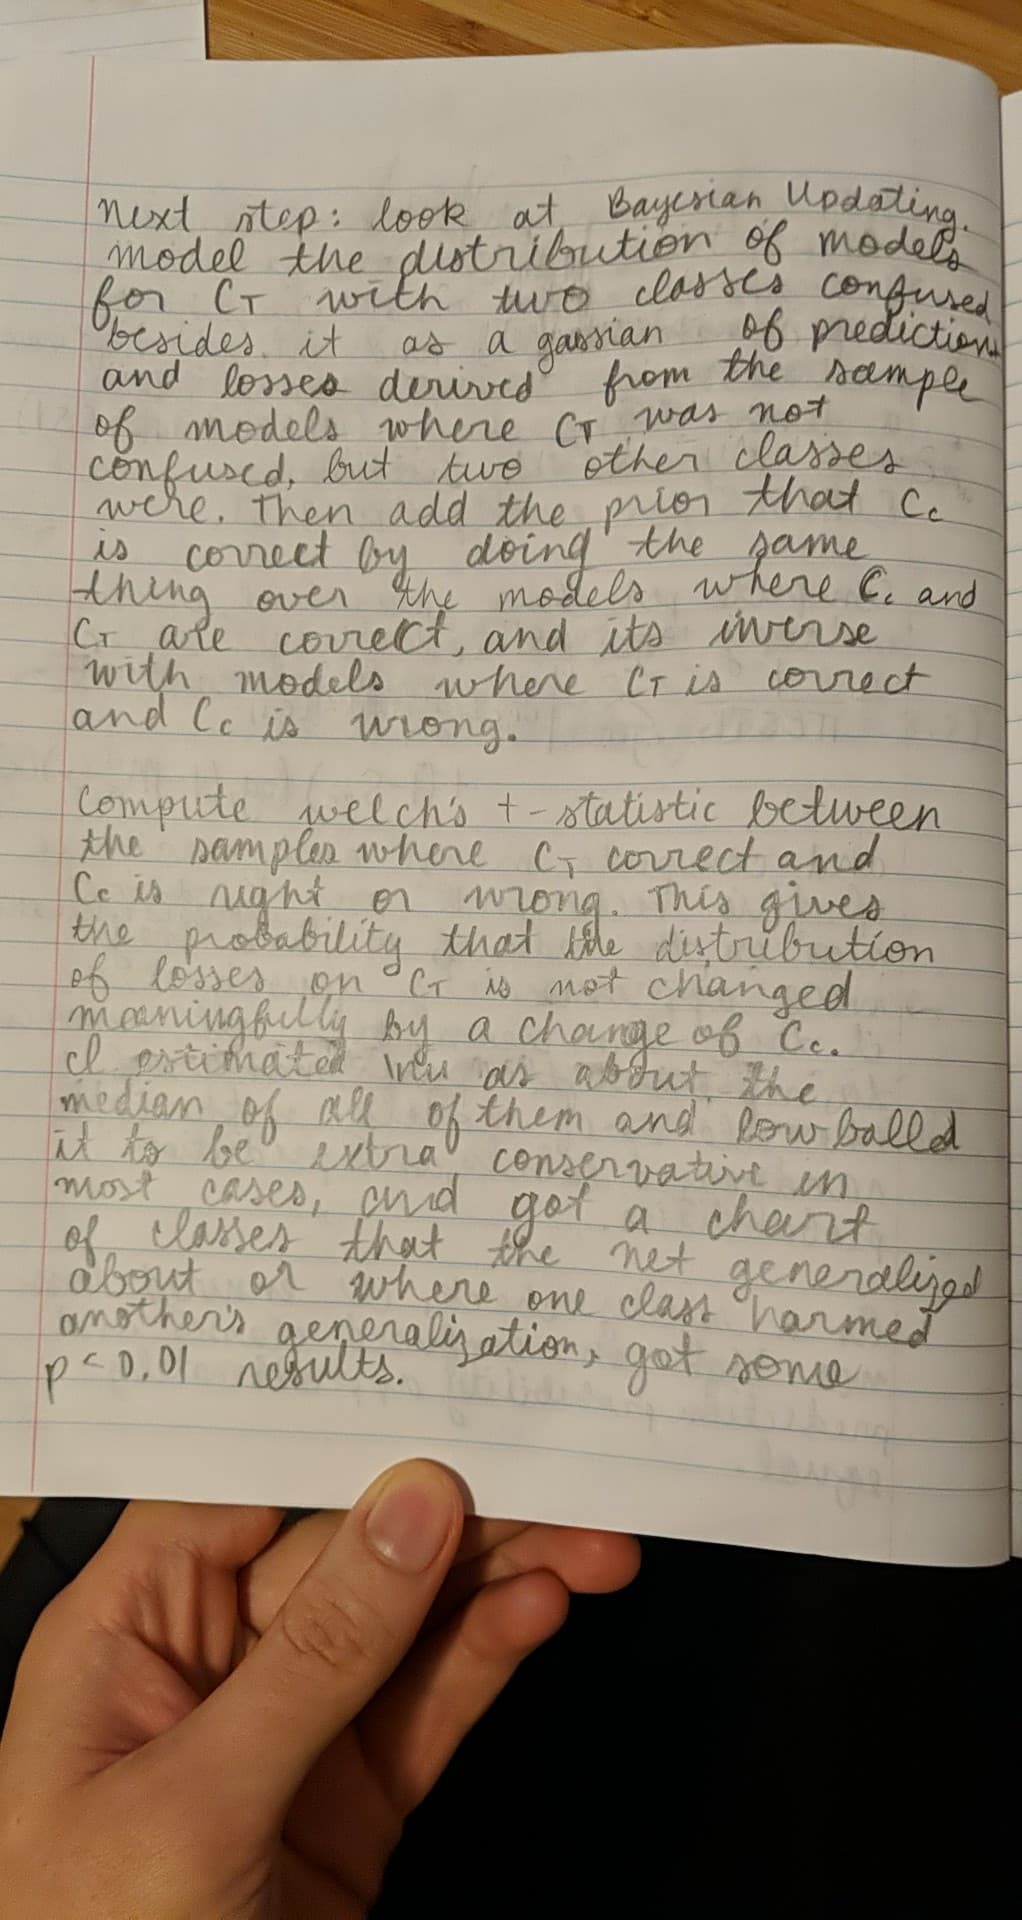 next step: look at Bayesian Updating.
model the distribution of models
for CT with two classes confused
besides it as a gassian of predictions
and losses derived from the sample
of models where CT was not
confused, but two other classes
were. Then add the prior that Cc
is correct by doing the same
thing over the models where Cc and
CT are correct, and its inverse
with models where CT is correct
and Cc is wrong.
Compute welch's t-statistic between
the samples where CT correct and
Cc is right or wrong. This gives
the probability that the distribution
of losses on CT is not changed
meaningfully by a change of Cc.
I estimated as about the
median of all of them and lowballed
it to be extra conservative in
most cases, and got a chart
of classes that the net generalized
about or where one class harmed
another's generalization, got some
p<0.01 results.